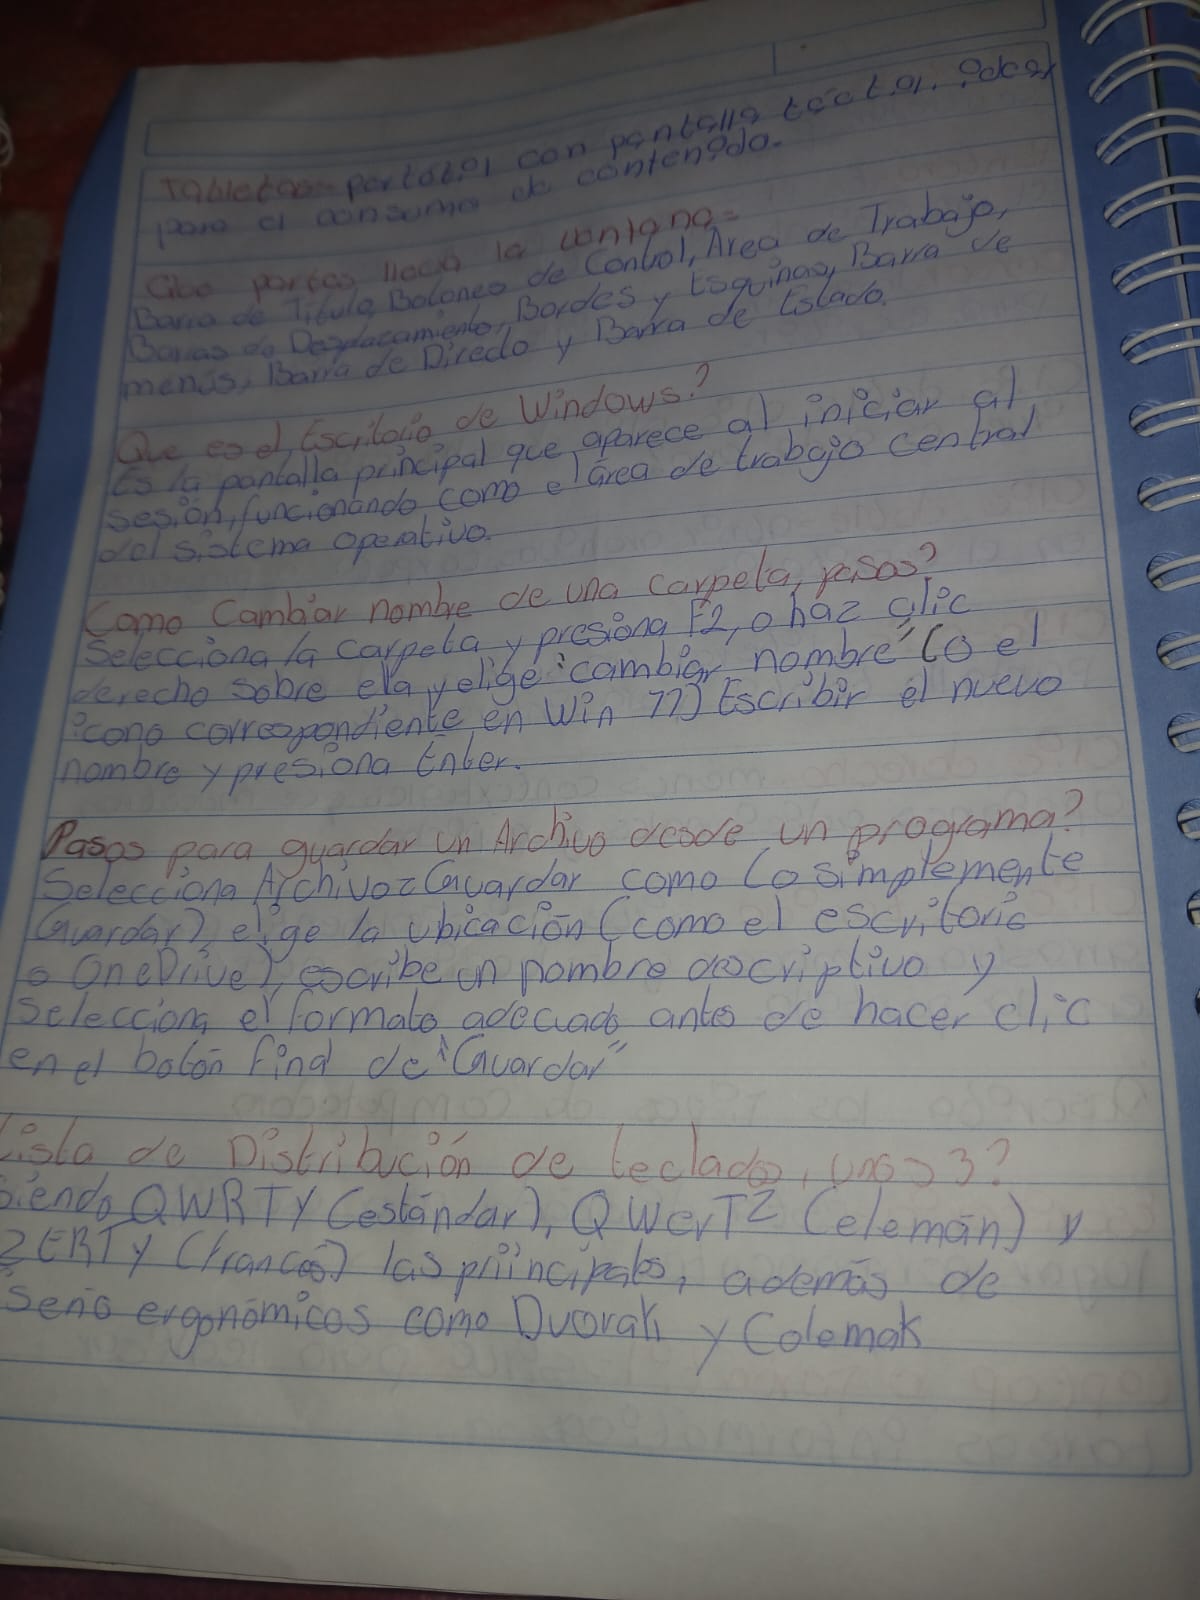 Tabletas= portátil con pantalla táctil. ideal
para el consumo de contenido.
Que partes lleva la ventana=
Barra de Título, Botones de Control, Área de Trabajo,
Barras de Desplazamiento, Bordes y Esquinas, Barra de
menús, Barra de Direcło y Barra de Estado.
Que es el Escritorio de Windows?
Es la pantalla principal que aparece al iniciar al
sesión, funcionando como el área de trabajo central
del sistema operativo.
Como Cambiar nombre de una carpeta, pasos?
Selecciona la carpeta y presiona F2, o haz clic
derecho sobre ela y elige "cambiar nombre" (o el
icono correspondiente en Win 11) Escribir el nuevo
nombre y presiona Enter.
Pasos para guardar un Archivo desde un programa?
Selecciona Archivo= Guardar como (o simplemente
Guardar), elige la ubicación (como el escritorio
o OneDrive), escribe un nombre descriptivo y
Selecciona el formato adecuado antes de hacer clic
en el botón final de "Guardar"
Lista de Distribución de teclados, unos 3?
Siendo QWRTY (estándar), QWerTZ (elemán) y
ZERTY (francés) las priincipales, además de
seño ergonómicos como Dvorak y Colemak